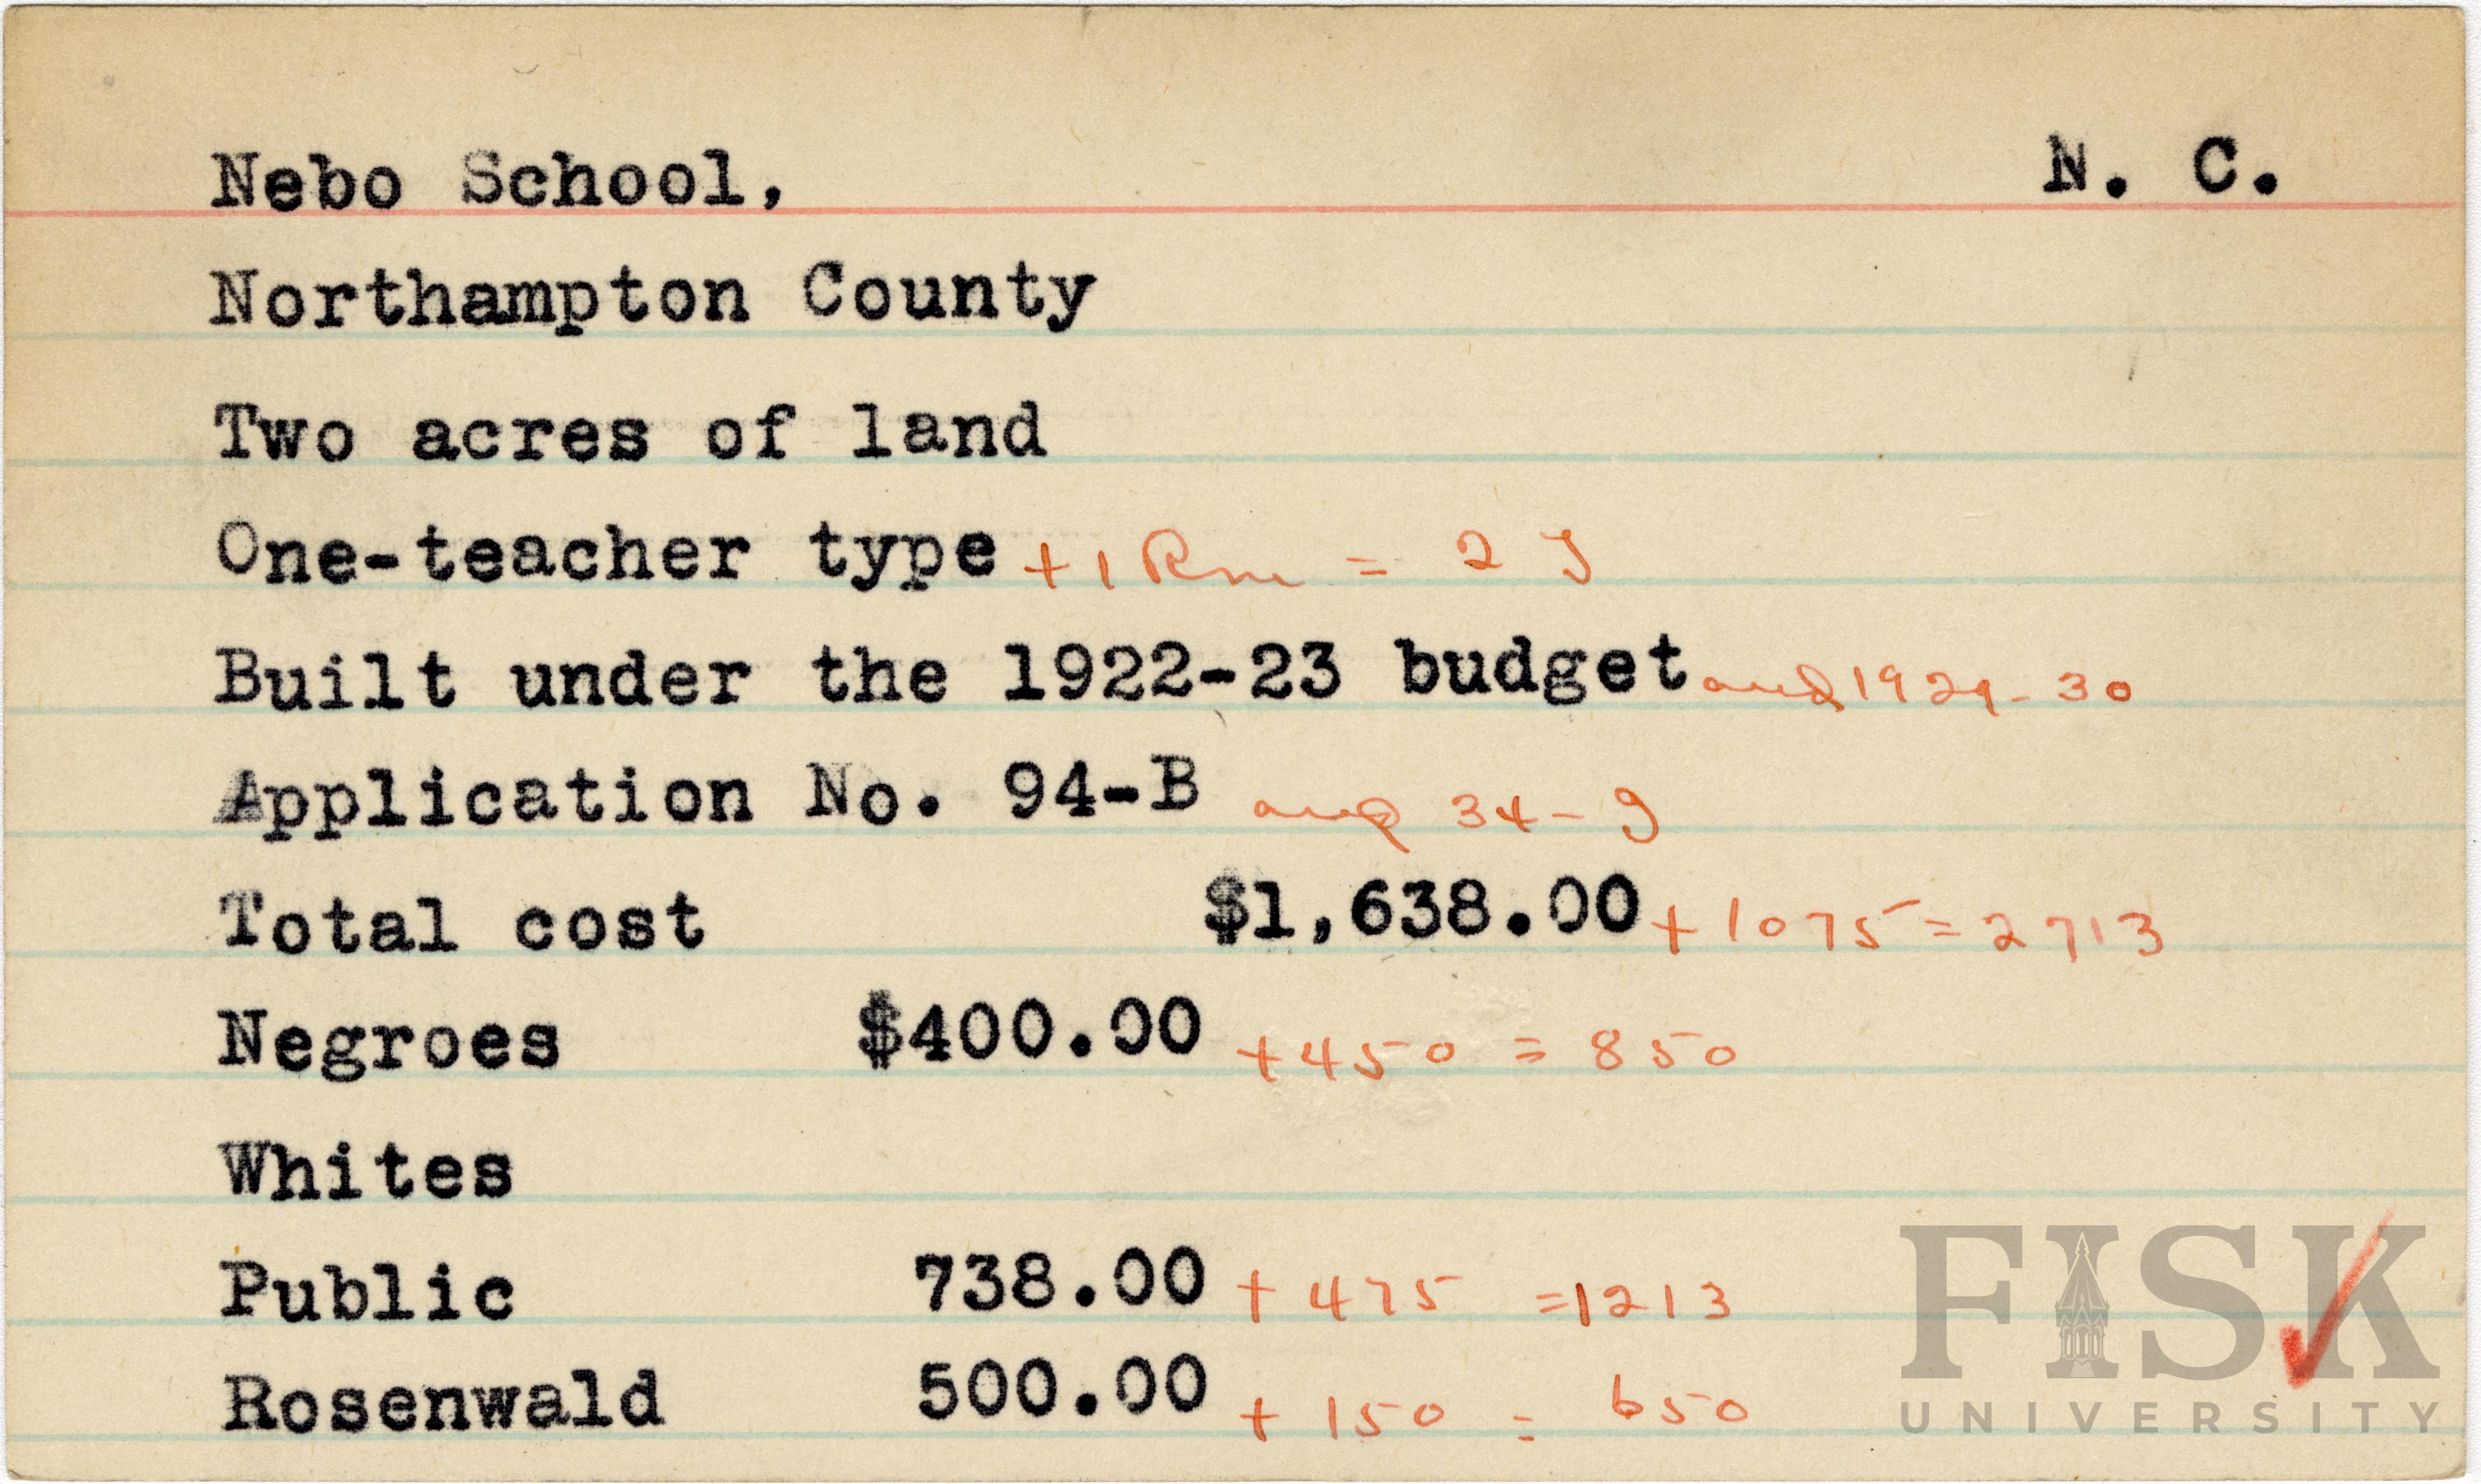 Nebo School, N. C.
Northampton County
Two acres of land
One-teacher type + 1 Rm = 2 T
Built under the 1922-23 budget and 1929-30
Application No. 94-B and 34-J
Total cost $1,638.00 + 1075 = 2713
Negroes $400.00 + 450 = 850
Whites
Public 738.00 + 475 = 1213
Rosenwald 500.00 + 150 = 650
FISK
UNIVERSITY